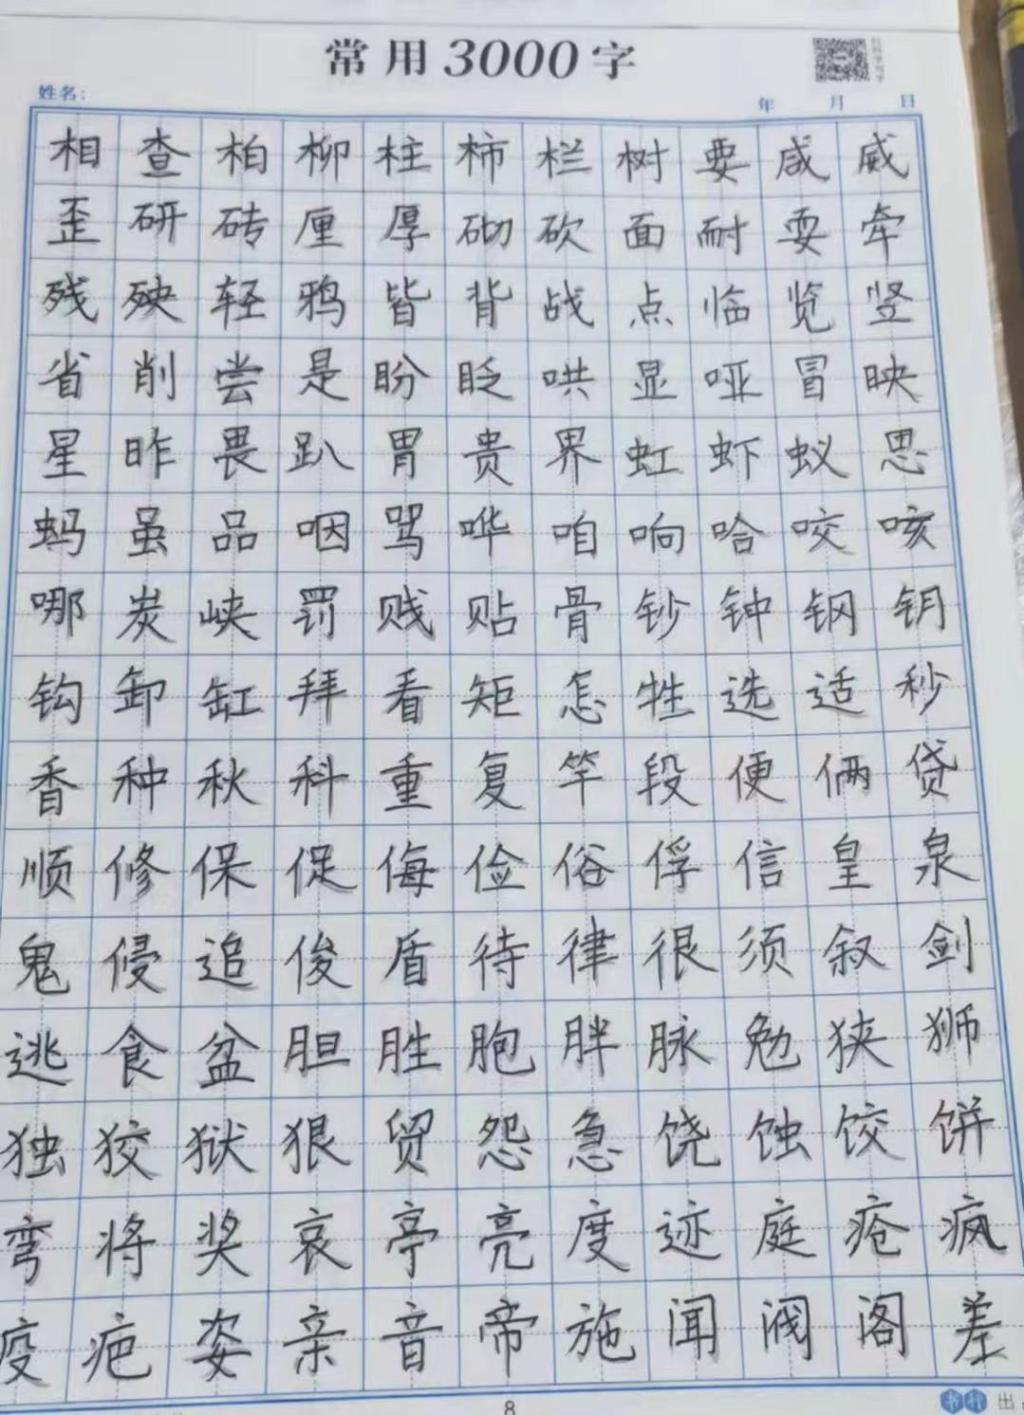 常用3000字
姓名：
年 月 日
相查柏柳柱柿栏树要咸威
歪研砖厘厚砌砍面耐耍牵
残殃轻鸦皆背战点临览竖
省削尝是盼眨哄显哑冒映
星昨畏趴胃贵界虹虾蚁思
蚂虽品咽骂哗咱响哈咬咳
哪炭峡罚贱贴骨钞钟钢钥
钩卸缸拜看矩怎牲选适秒
香种秋科重复竿段便俩贷
顺修保促侮俭俗俘信皇泉
鬼侵追俊盾待律很须叙剑
逃食盆胆胜胞胖脉勉狭狮
独狡狱狠贸怨急饶蚀饺饼
弯将奖哀亭亮度迹庭疮疯
疫疤姿亲音帝施闻阀阁差
8
出